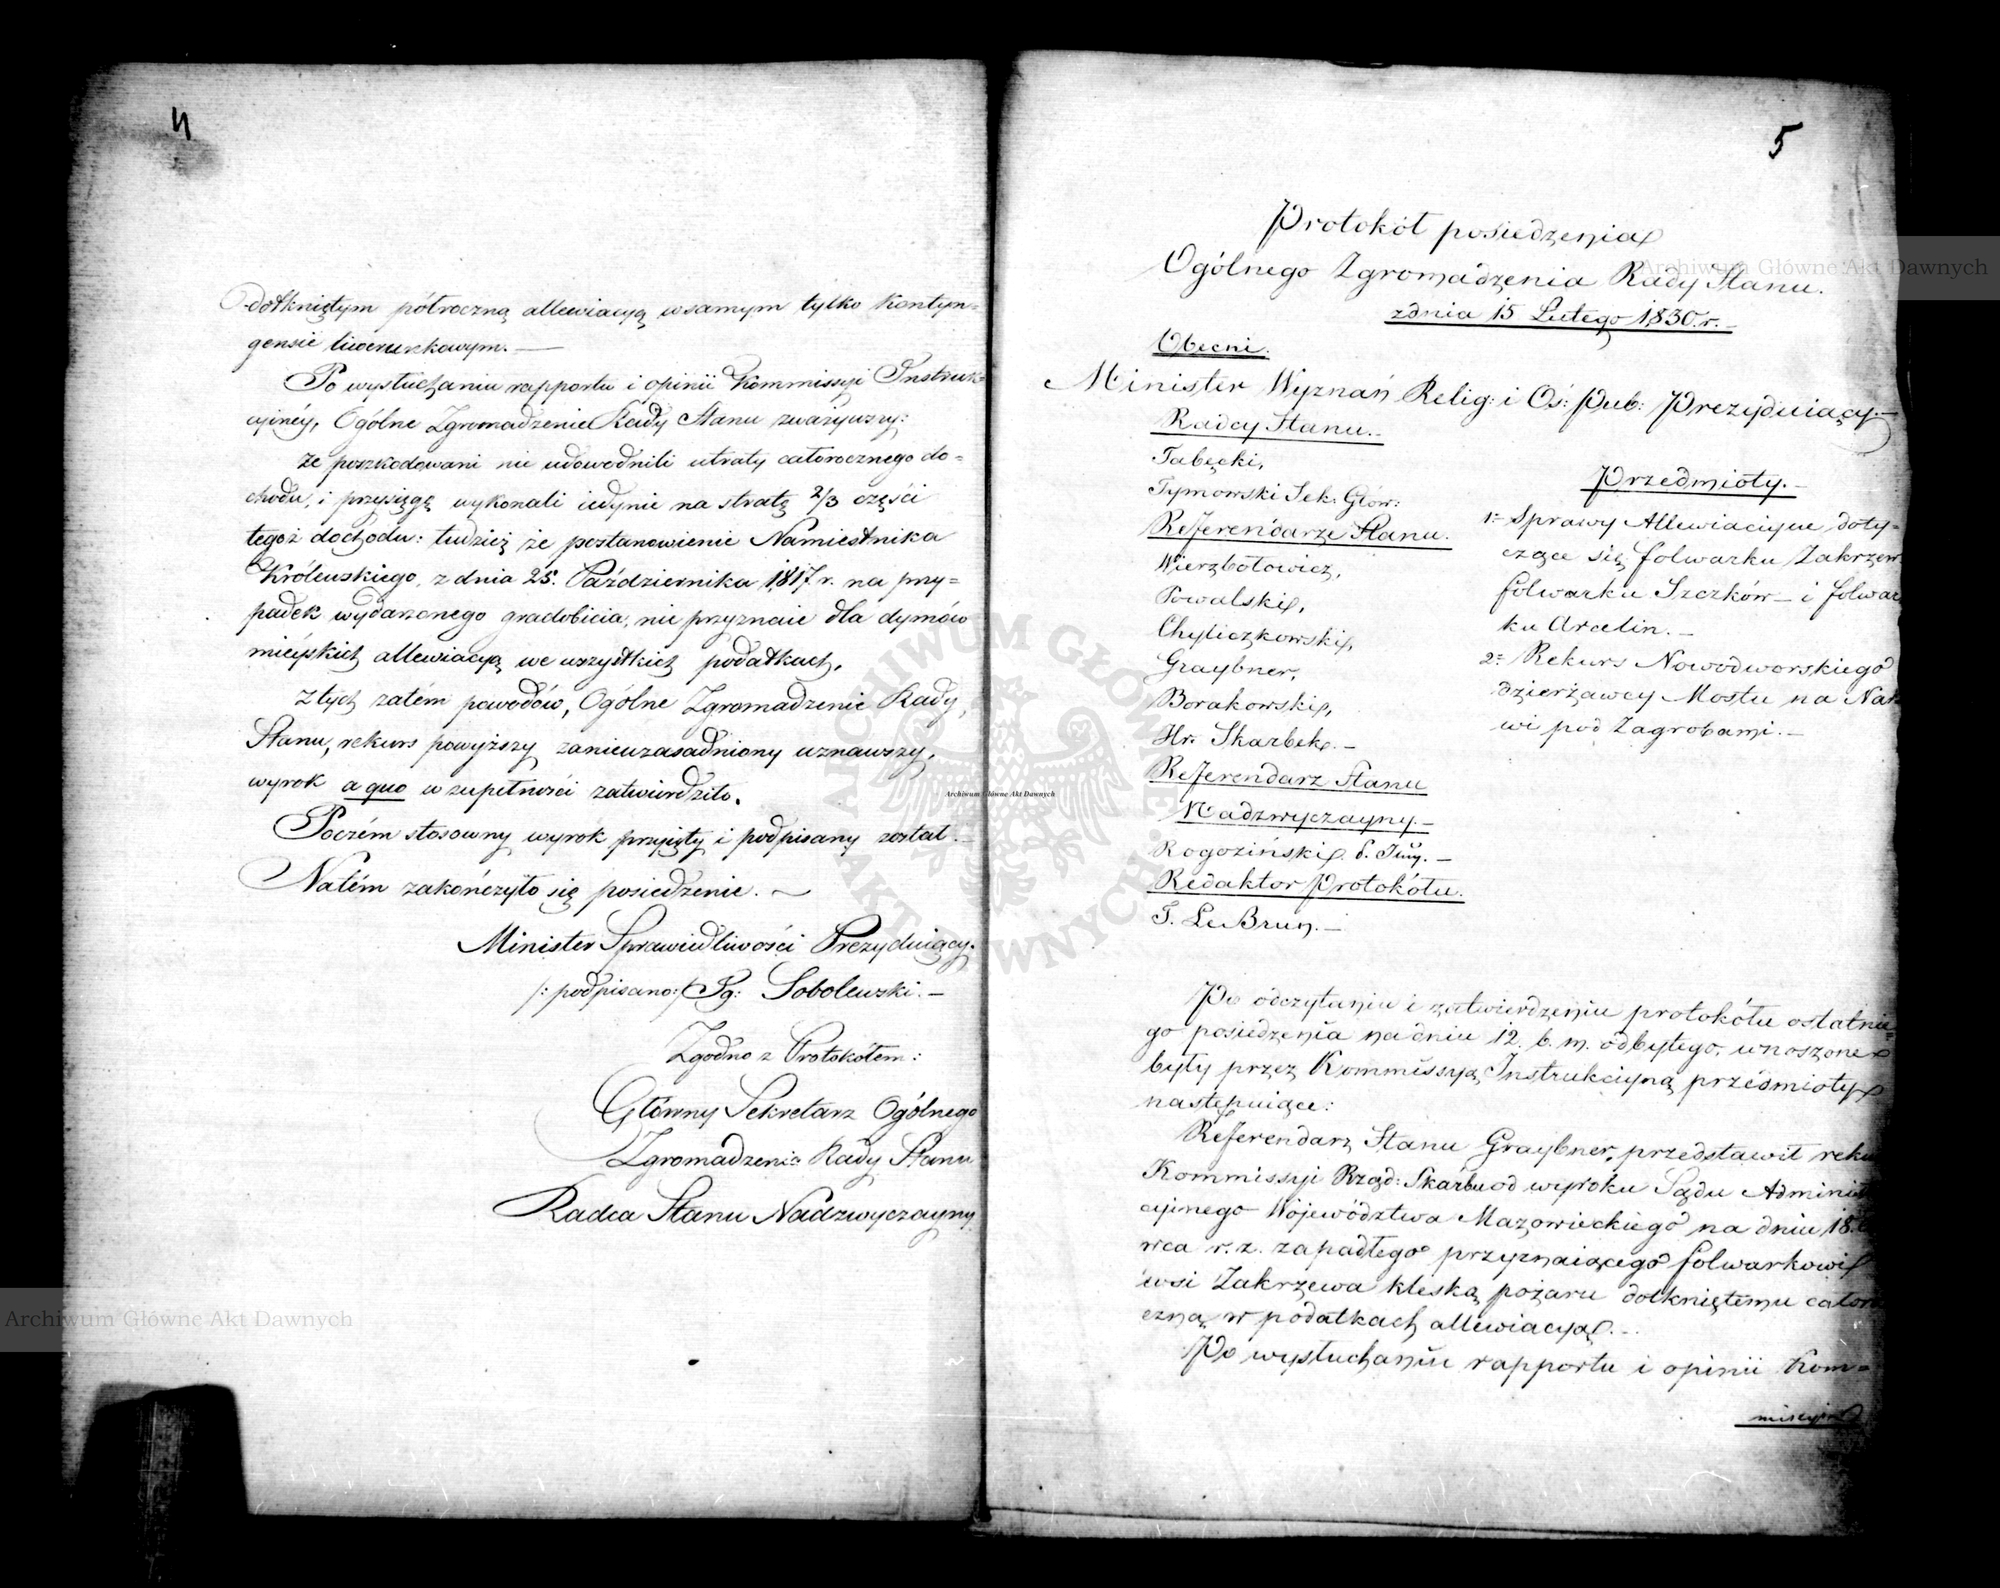 4
dotkniętym półroczną allewiacyą w samym tylko kontyn=
gensie liwerunkowym. —
Po wysłuchaniu rapportu i opinii Kommissyi Instruk
cyinéy, Ogólne Zgromadzenie Rady Stanu zważywszy:
że poszkodowani nie udowodnili utraty całorocznego do=
chodu, i przysięgę wykonali iedynie na stratę 2/3 części
tegoż dochodu: tudzież że postanowienie Namiestnika
Królewskiego z dnia 25. Października 1817 r. na przy=
padek wydarzonego gradobicia, nie przyznaie dla dymów
mieyskich allewiacyą we wszystkich podatkach.
Z tych zatém powodów, Ogólne Zgromadzenie Rady
Stanu, rekurs powyższy za nieuzasadniony uznawszy,
wyrok a quo w zupełności zatwierdziło.
Poczém stosowny wyrok przyięty i podpisany został. —
Natém zakończyło się posiedzenie. —
Minister Sprawiedliwości Prezyduiący.
/: podpisano:/ Ig: Sobolewski. —
Zgodno z Protokółem:
Główny Sekretarz Ogólnego
Zgromadzenia Rady Stanu
Radca Stanu Nadzwyczayny
5
Protokół posiedzenia
Ogólnego Zgromadzenia Rady Stanu.
z dnia 15 Lutego 1830 r. —
Obecni.
Minister Wyznań Relig: i Oś: Pub: Prezyduiący. —
Radcy Stanu. —
Tabęcki,
Tymowski Sek: Głów:
Referendarze Stanu.
Wierzbołowicz,
Powalski,
Chyliczkowski,
Graybner,
Borakowski,
Hr. Skarbek. —
Referendarz Stanu
Nadzwyczayny. —
Rogoziński —
Redaktor Protokółu.
LeBrun. —
Przedmioty. —
1= Sprawy Allewiacyine doty=
czące się folwarku Zakrzew
folwarku Szczków — i folwar
ku Arcelin. —
2= Rekurs Nowodworskiego
dzierżawcy Mostu na Nar
wi pod Zagrobami. —
Po odczytaniu i zatwierdzeniu protokółu ostatnie=
go posiedzenia na dniu 12. b. m. odbytego, wnoszone
były przez Kommissyą Instrukcyiną przedmioty
następuiące:
Referendarz Stanu Graybner, przedstawił reku
Kommissyi Rząd: Skarbu od wyroku Sądu Admini
cyinego Województwa Mazowieckiego na dniu 18.
wca r. z. zapadłego przyznaiącego folwarkowi
wsi Zakrzewa klęską pożaru dotkniętemu całoro
czną w podatkach allewiacyą. —
Po wysłuchaniu rapportu i opinii Kom=
missyi
Archiwum Główne Akt Dawnych
Archiwum Główne Akt Dawnych
Archiwum Główne Akt Dawnych
ARCHIWUM GŁÓWNE AKT DAWNYCH